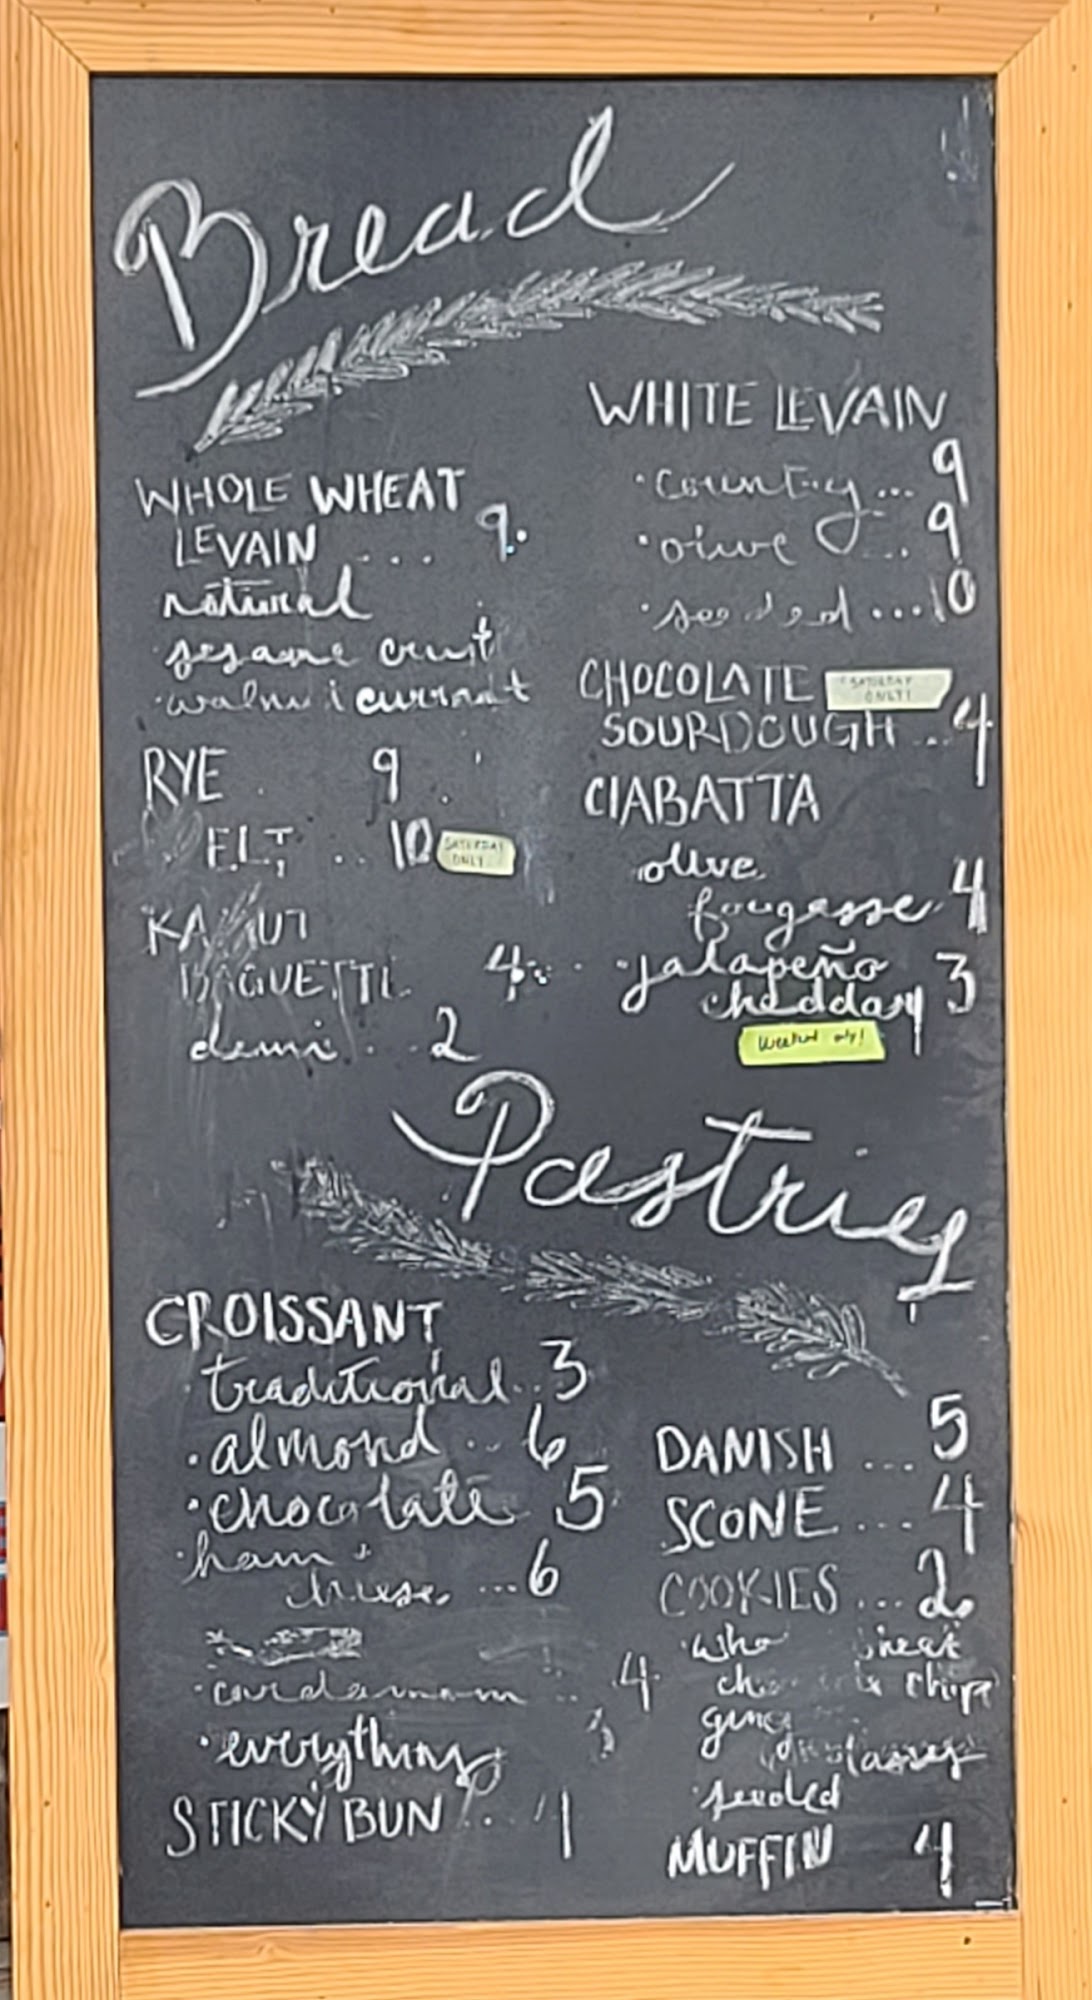 Bread
WHOLE WHEAT
LEVAIN .... 9.
natural
sesame crust
·walnut currant
RYE . 9
F.L.T, .. 10 SATURDAY
ONLY!
KAMUT
BAGUETTE 4
demi ... 2
WHITE LEVAIN
·country... 9
·olive ... 9
·seeded ...10
CHOCOLATE SATURDAY
ONLY!
SOURDOUGH ...4
CIABATTA
olive
fougasse 4
·jalapeño
cheddar 3
Weekend only!
Pastries
CROISSANT
·traditional..3
·almond .. 6
·chocolate 5
·ham +
cheese ...6
·cardamom .. 4
·everything
STICKY BUN ...
DANISH ... 5
SCONE ... 4
COOKIES ... 2
·whole wheat
chocolate chip
ginger
molasses
·seeded
MUFFIN 4